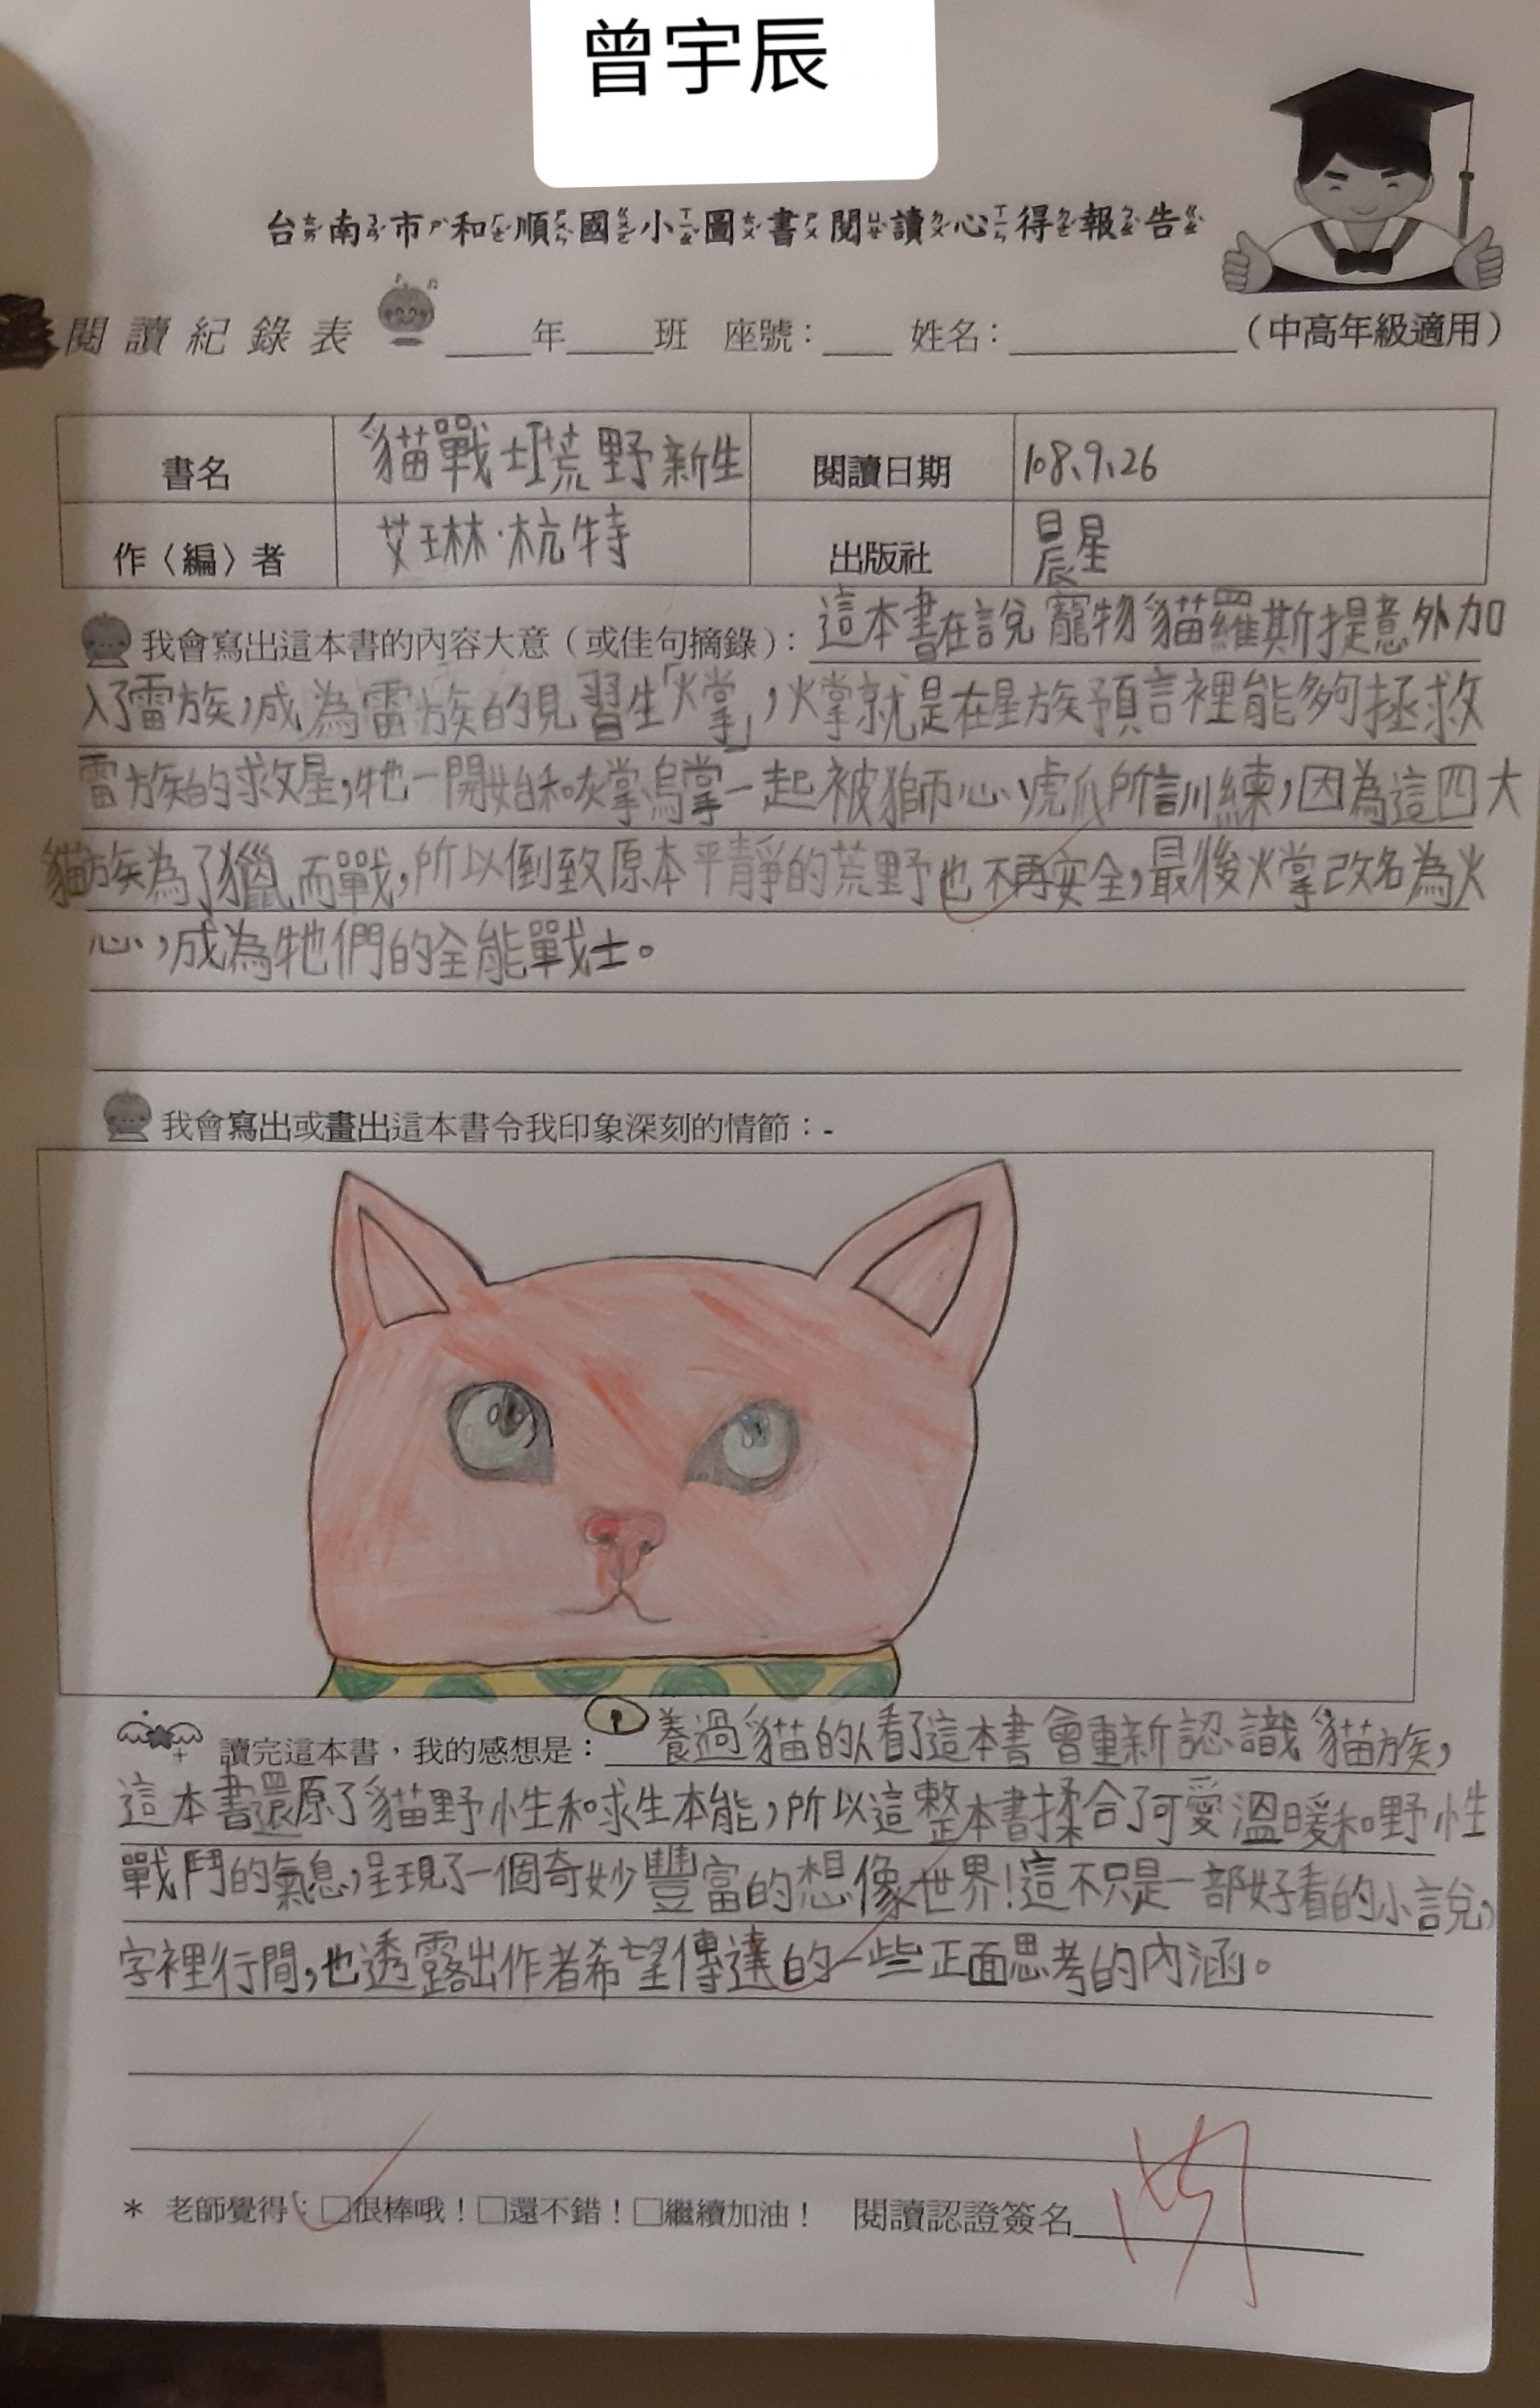 曾宇辰
台南市和順國小圖書閱讀心得報告
閱讀紀錄表 ____年____班 座號：___ 姓名：__________（中高年級適用）
書名 貓戰士荒野新生 閱讀日期 108、9、26
作〈編〉者 艾琳·杭特 出版社 晨星
我會寫出這本書的內容大意（或佳句摘錄）：這本書在說寵物貓羅斯提意外加
入了雷族，成為雷族的見習生「火掌」，火掌就是在星族預言裡能夠拯救
雷族的救星，牠一開始和灰掌、烏掌一起被獅心、虎爪所訓練，因為這四大
貓族為了獵而戰，所以倒致原本平靜的荒野也不再安全，最後火掌改名為火
心，成為牠們的全能戰士。
我會寫出或畫出這本書令我印象深刻的情節：-
讀完這本書，我的感想是：養過貓的人看了這本書會重新認識貓族，
這本書還原了貓野性和求生本能，所以這整本書揉合了可愛溫暖和野性
戰鬥的氣息，呈現了一個奇妙豐富的想像世界！這不只是一部好看的小說，
字裡行間，也透露出作者希望傳達的一些正面思考的內涵。
* 老師覺得：□很棒哦！□還不錯！□繼續加油！ 閱讀認證簽名